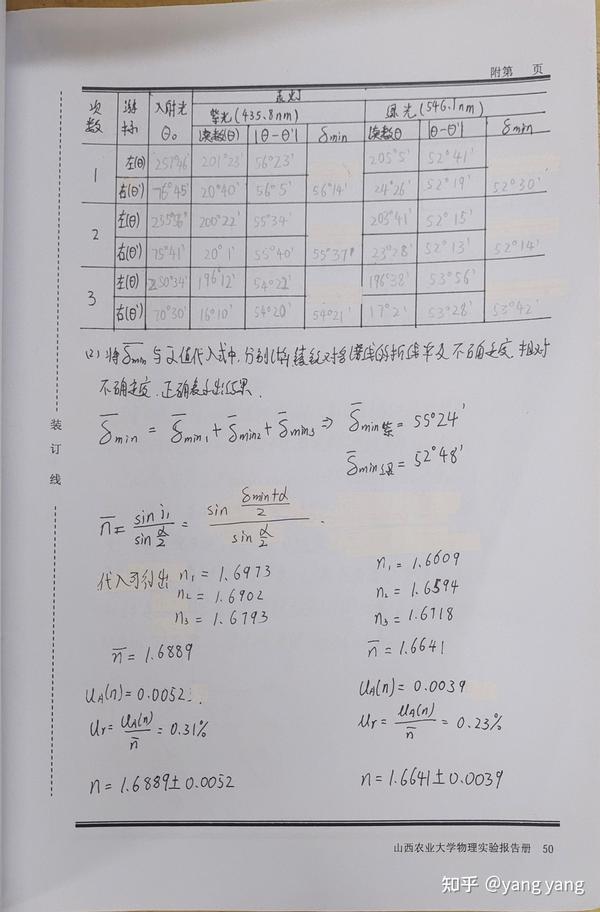 附第 页
次数 游标 入射光 θ₀ 汞灯
紫光(435.8nm) 绿光(546.1nm)
读数(θ) |θ-θ'| δmin 读数θ |θ-θ'| δmin
1 左(θ) 257°46' 201°23' 56°23' 205°5' 52°41'
右(θ') 76°45' 20°40' 56°5' 56°14' 24°26' 52°19' 52°30'
2 左(θ) 200°22' 55°34' 203°41' 52°15'
右(θ') 75°41' 20°1' 55°40' 55°37' 23°28' 52°13' 52°14'
3 左(θ) 250°34' 196°12' 54°22' 196°38' 53°56'
右(θ') 70°30' 16°10' 54°20' 54°21' 17°2' 53°28' 53°42'
(2) 将δ̄min与α值代入式中,分别计算棱镜对各谱线的折射率及不确定度、相对
不确定度,正确表示出结果.
δ̄min = δ̄min₁ + δ̄min₂ + δ̄min₃ ⇒ δ̄min紫 = 55°24'
δ̄min绿 = 52°48'
n̄ = sin i₁ / sin α/2 = sin (δmin+α)/2 / sin α/2 .
代入可得出 n₁ = 1.6973 n₁ = 1.6609
n₂ = 1.6902 n₂ = 1.6594
n₃ = 1.6793 n₃ = 1.6718
n̄ = 1.6889 n̄ = 1.6641
uA(n) = 0.0052 uA(n) = 0.0039
ur = uA(n)/n̄ = 0.31% ur = uA(n)/n̄ = 0.23%
n = 1.6889 ± 0.0052 n = 1.6641 ± 0.0039
装订线
山西农业大学物理实验报告册 50
知乎 @yang yang